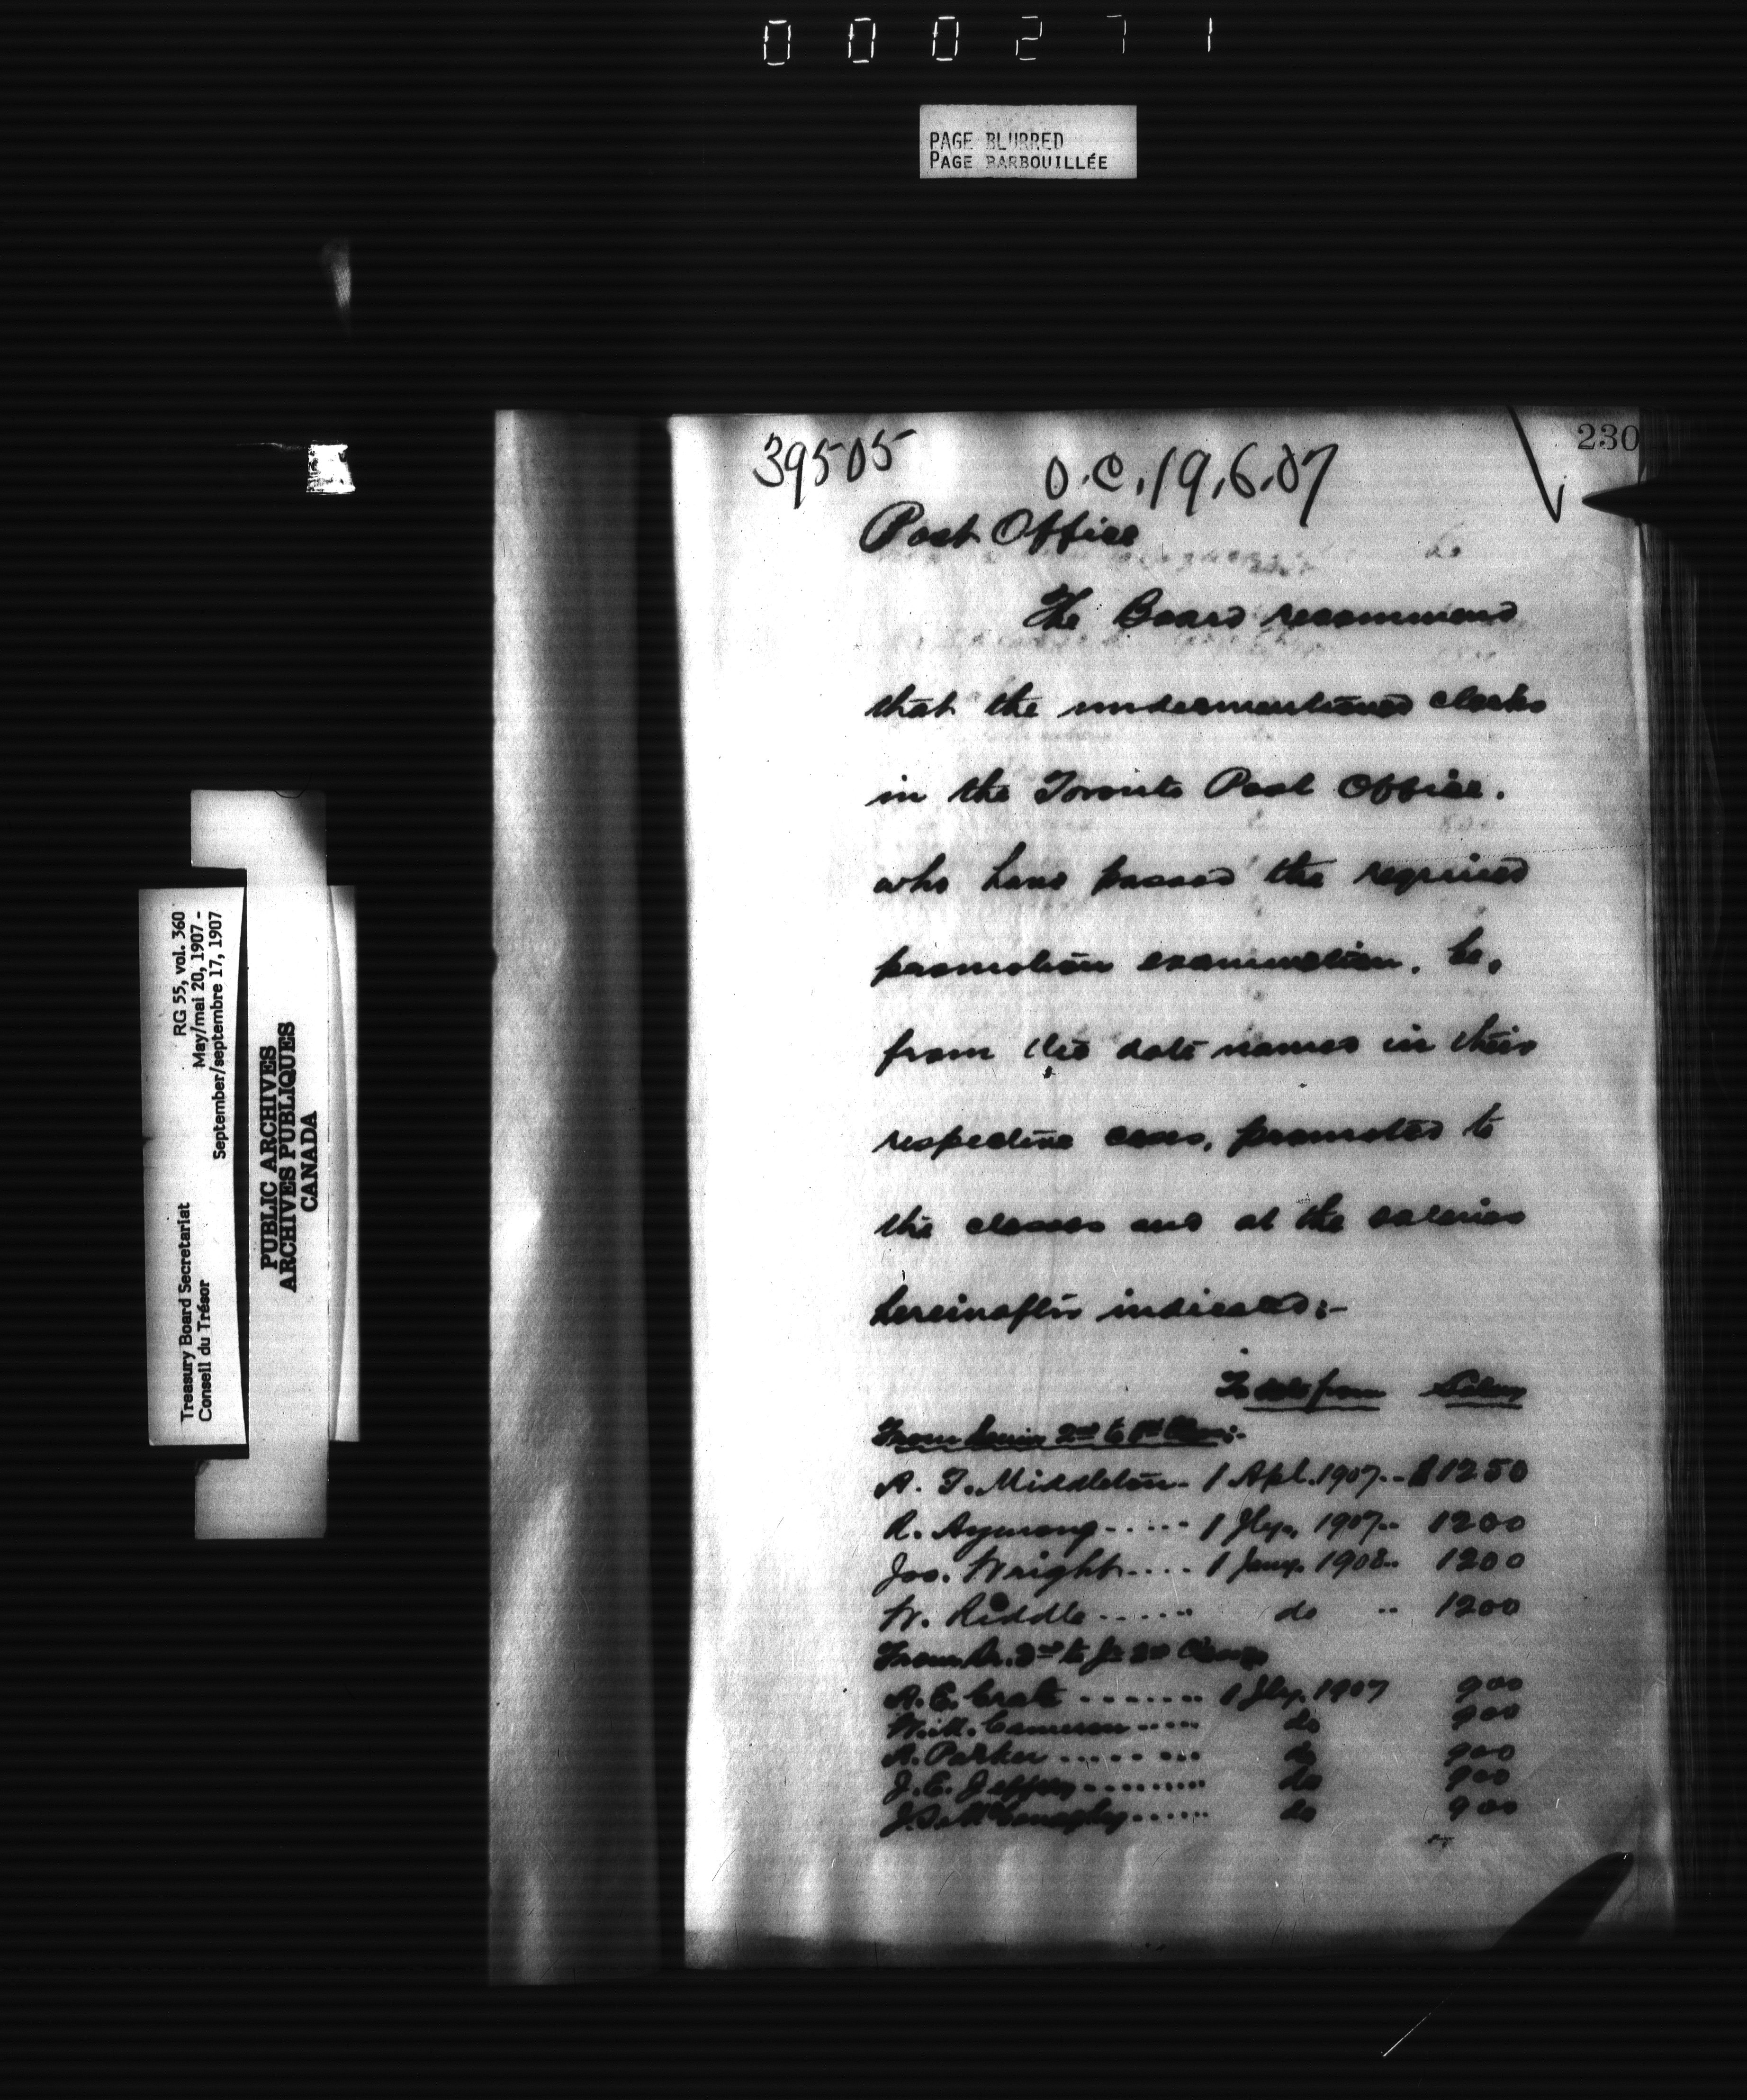 000271
PAGE BLURRED
PAGE BARBOUILLÉE
230
39505
O.C. 19.6.07
Post Office
The Board recommend
that the undermentioned clerks
in the Toronto Post Office.
who have passed the required
promotion examination, be,
from the date named in their
respective cases, promoted to
the classes and at the salaries
hereinafter indicated:-
To date from Salary
From Junior 2nd to 1st Class:-
A. T. Middleton - 1 Apl. 1907 .. $1250
R. ..... 1 Jly. 1907 .. 1200
Jos. Wright .... 1 Jany. 1908 .. 1200
W. Riddle ..... do .. 1200
From Sr. 3rd to Jr. 2nd Class
A. E. ....... 1 Jly. 1907 900
W. M. Cameron ..... do 900
A. Parker ........ do 900
J. E. Jeffery ......... do 900
McConaghy ...... do 900
RG 55, vol. 360
May/mai 20, 1907 -
September/septembre 17, 1907
Treasury Board Secretariat
Conseil du Trésor
PUBLIC ARCHIVES
ARCHIVES PUBLIQUES
CANADA